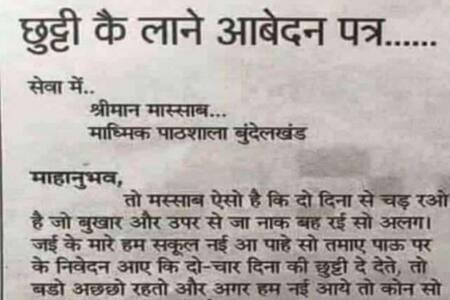 छुट्टी कै लाने आबेदन पत्र......
सेवा में..
श्रीमान मास्साब...
माध्मिक पाठशाला बुंदेलखंड
माहानुभव,
तो मस्साब ऐसो है कि दो दिना से चड़ रओ
है जो बुखार और उपर से जा नाक बह रई सो अलग।
जई के मारे हम सकूल नई आ पाहे सो तमाए पाऊ पर
के निवेदन आए कि दो-चार दिना की छुट्टी दे देते, तो
बडो अछछो रहतो और अगर हम नई आये तो कोन सो